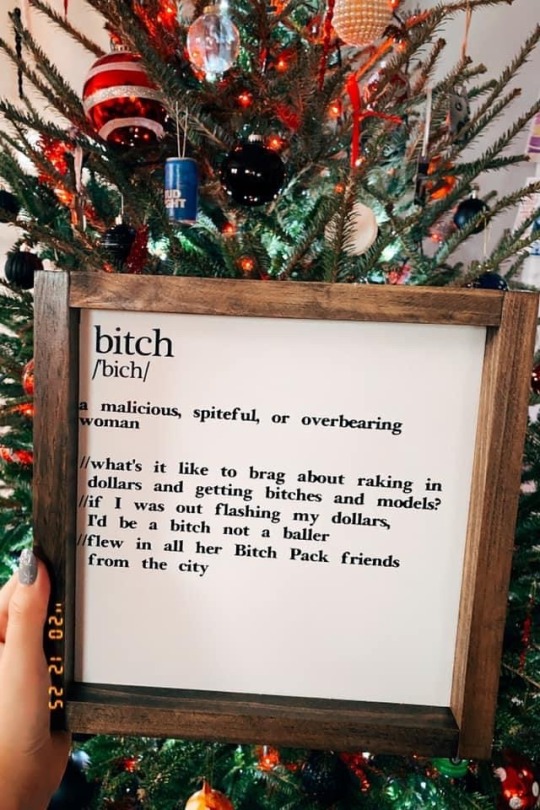 bitch
/'bich/
a malicious, spiteful, or overbearing
woman
//what's it like to brag about raking in
dollars and getting bitches and models?
//if I was out flashing my dollars,
I'd be a bitch not a baller
//flew in all her Bitch Pack friends
from the city